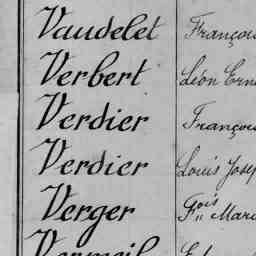 Vaudelet François
Verbert Léon Erne
Verdier François
Verdier Louis Josep
Verger Fois Marc
Vermeil